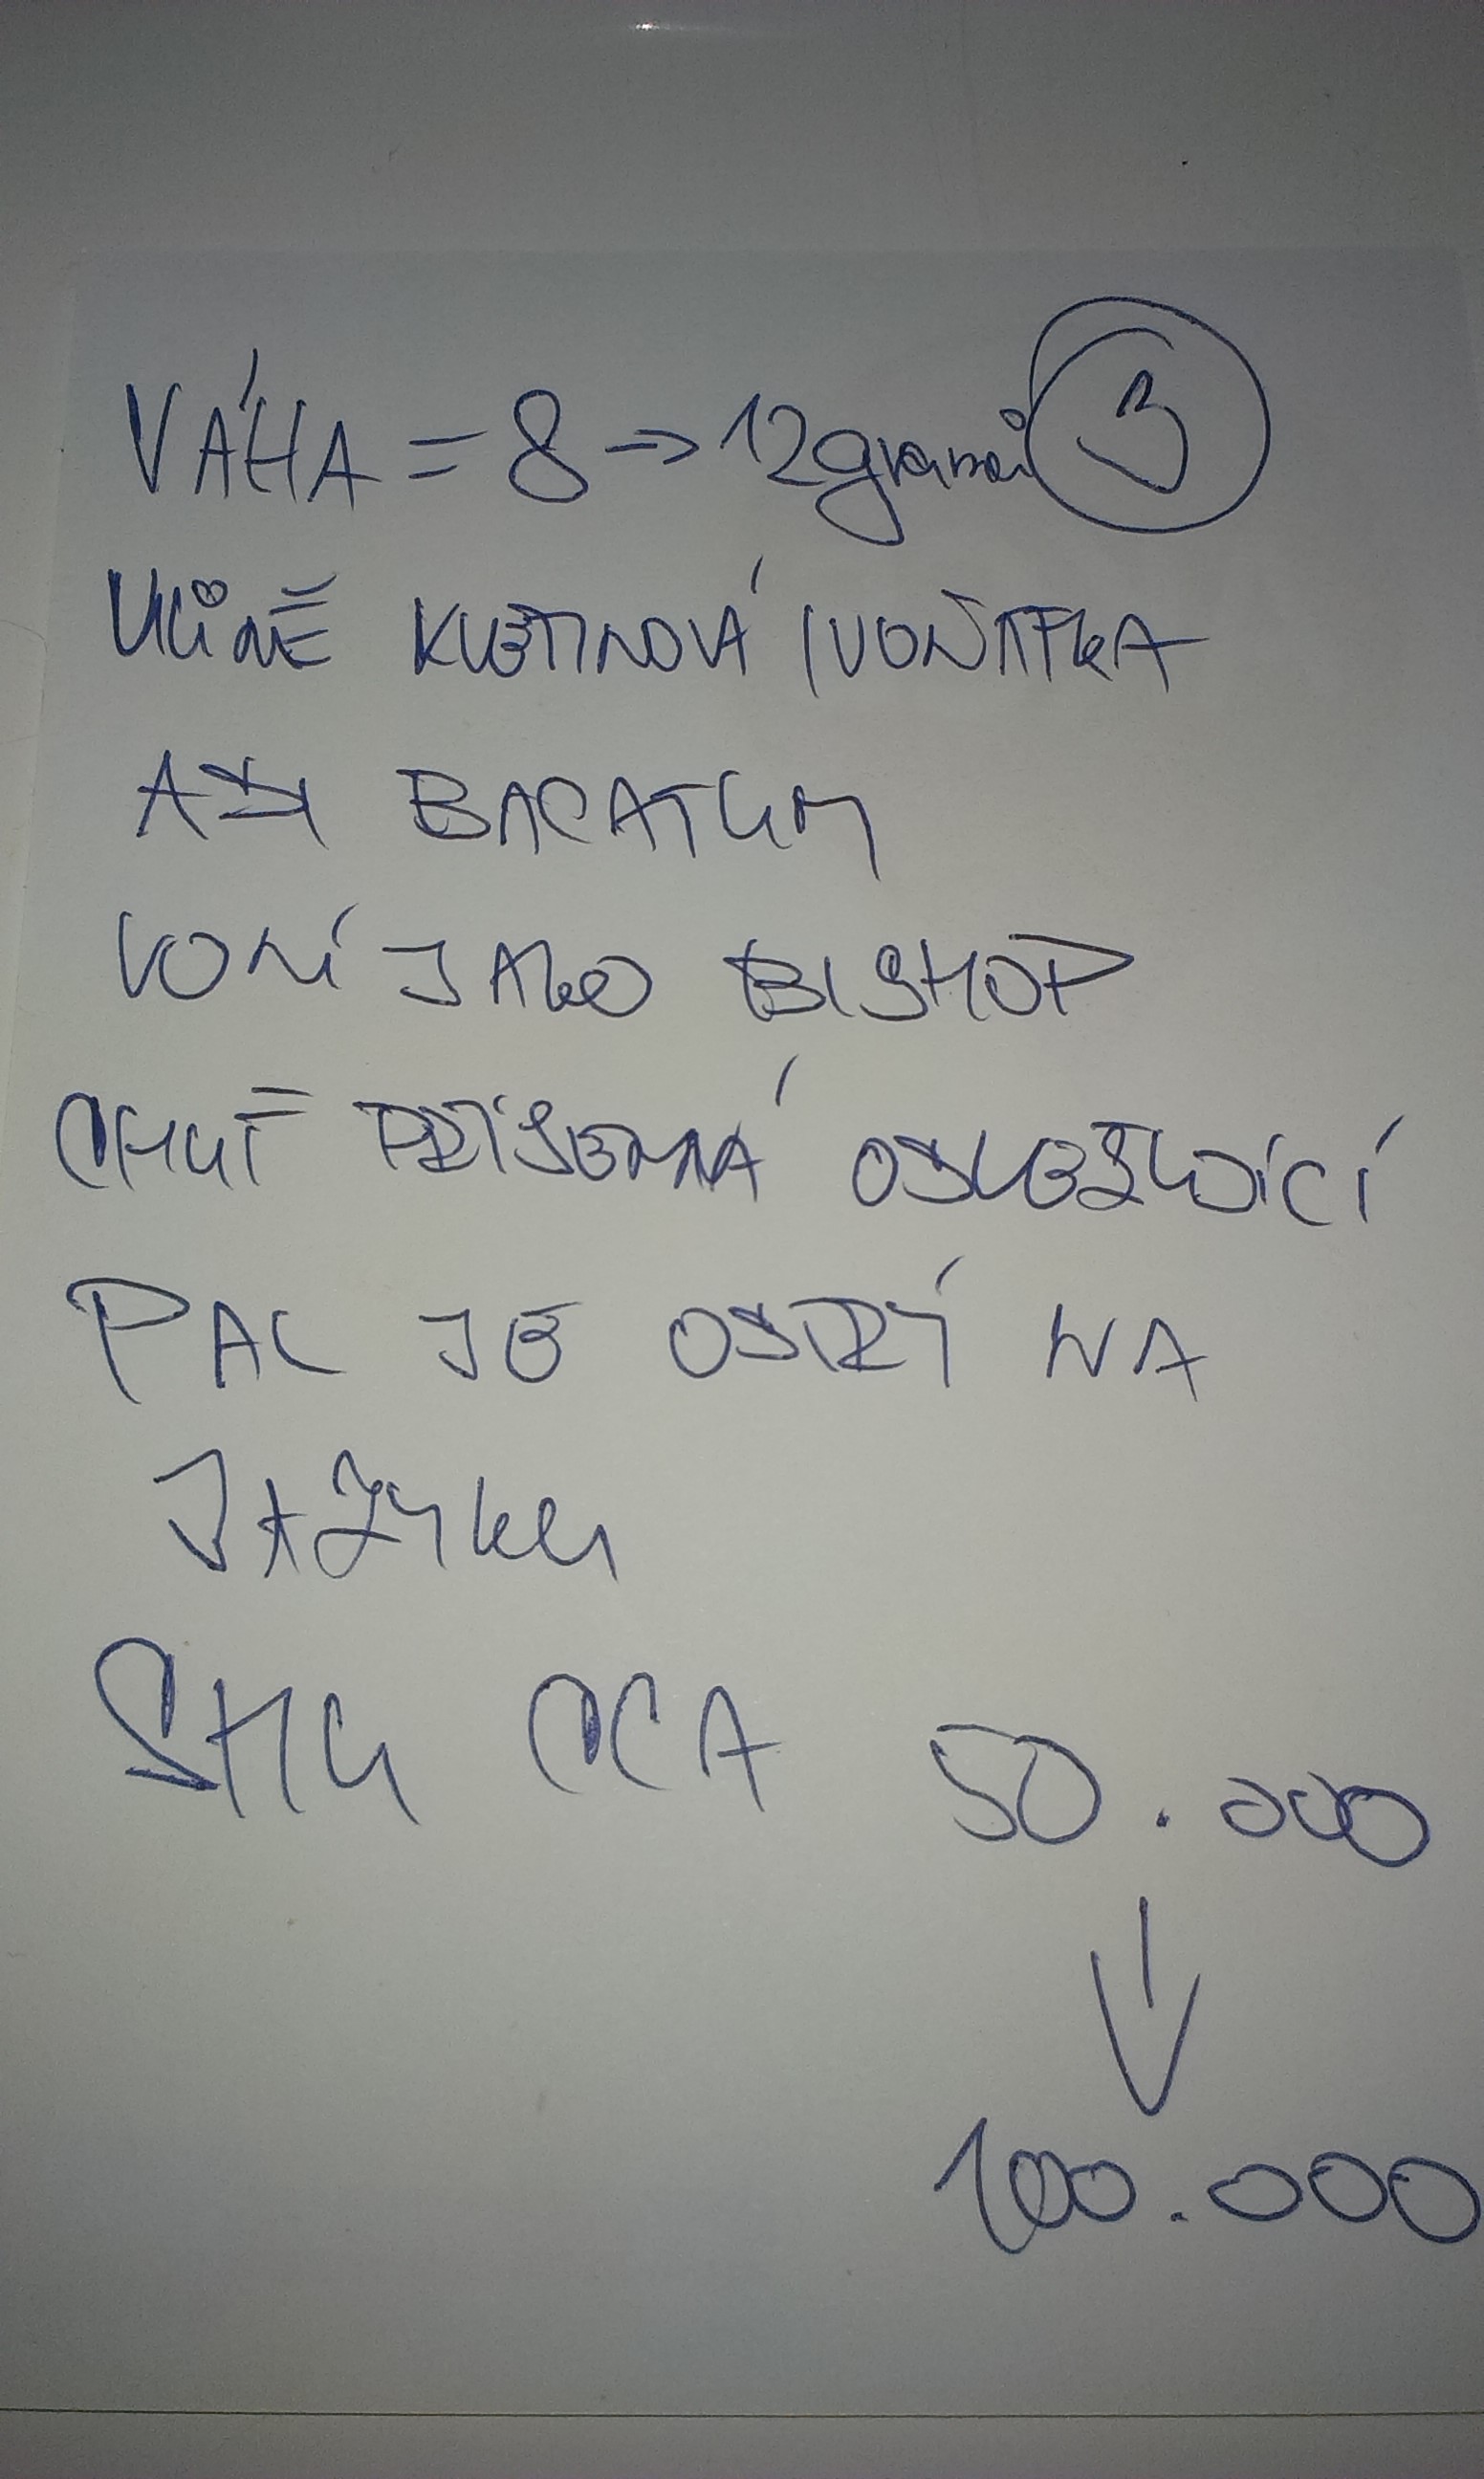 VÁHA = 8 → 12gramů 3
VŮNĚ KVĚTINOVÁ / VOŇAVKA
ASI BACATUM
VONÍ JAKO BISHOP
CHUŤ PŘÍJEMNÁ OSVĚŽUJÍCÍ
PAL JE OSTRÝ NA
JAZYKU
SHU CCA 50.000
↓
100.000